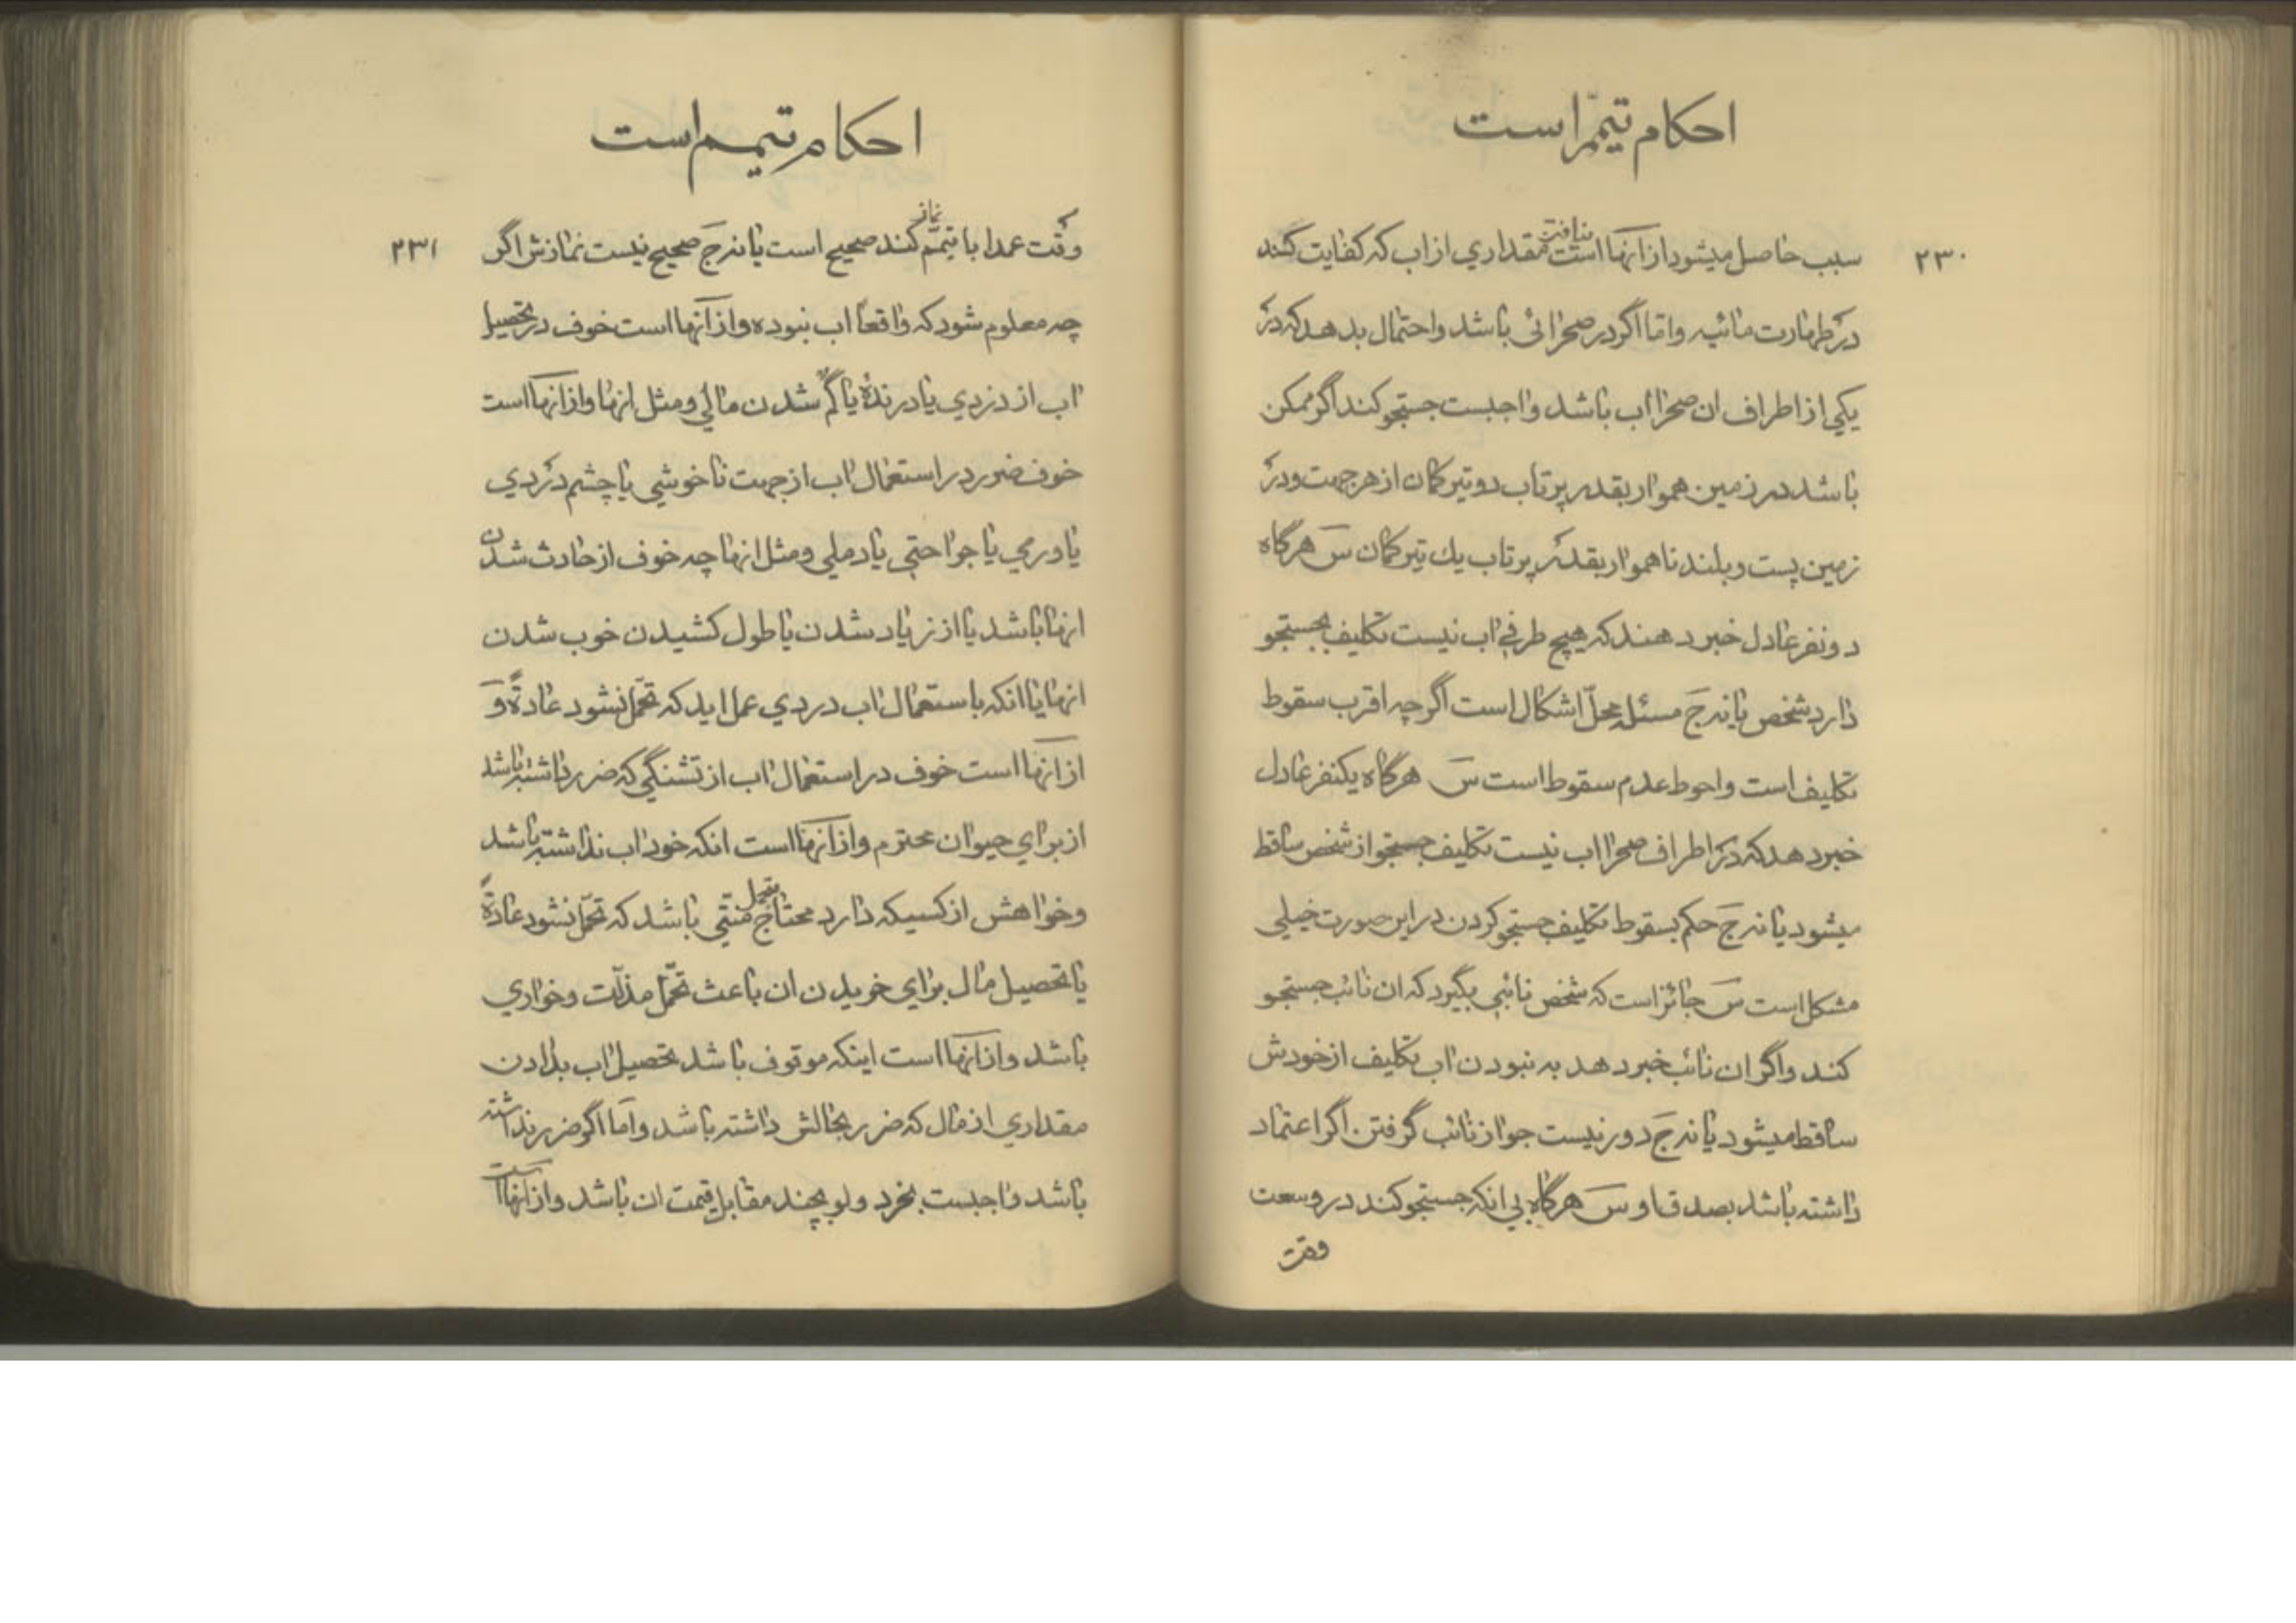 احکام تیمّم است
۲۳۰
سبب حاصل میشود از آنها است نیافتن مقداري از اب که کفایت کند
در طهارت مائیه و امّا اگر در صحرائی باشد و احتمال بدهد که در
یکی از اطراف ان صحرا اب باشد واجبست جستجو کند اگر ممکن
باشد در زمین هموار بقدر پرتاب دو تیر کمان از هر جهت و در
زمین پست و بلند ناهموار بقدر پرتاب یك تیر کمان س هرگاه
دو نفر عادل خبر دهند که هیچ طرفی اب نیست تکلیف بجستجو
دارد شخص یا نه ج مسئله محلّ اشکال است اگرچه اقرب سقوط
تکلیف است و احوط عدم سقوط است س هرگاه یکنفر عادل
خبر دهد که در اطراف صحرا اب نیست تکلیف جستجو از شخص ساقط
میشود یا نه ج حکم بسقوط تکلیف جستجو کردن در این صورت خیلی
مشکل است س جائز است که شخص نائبی بگیرد که ان نائب جستجو
کند و اگر ان نائب خبر دهد به نبودن اب تکلیف از خودش
ساقط میشود یا نه ج دور نیست جواز نائب گرفتن اگر اعتماد
داشته باشد بصدق او س هرگاه بی انکه جستجو کند در وسعت
وقت
احکام تیمم است
۲۳۱
وقت عمدا با تیمّم نماز کند صحیح است یا نه ج صحیح نیست نمازش اگر
چه معلوم شود که واقعاً اب نبوده و از آنها است خوف در تحصیل
اب از دزدي یا درندۀ یا گم شدن مالی و مثل انها و از انها است
خوف ضرر در استعمال اب از جهت ناخوشی یا چشم دردي
یا ورمی یا جراحتی یا دملی و مثل انها چه خوف از حادث شدن
انها باشد یا از زیاد شدن یا طول کشیدن خوب شدن
انها یا انکه باستعمال اب دردي عمل اید که تحمّل نشود عادةً و
از انها است خوف در استعمال اب از تشنگی که ضرر داشته باشد
از براي حیوان محترم و از آنها است انکه خود اب نداشته باشد
و خواهش از کسیکه دارد محتاج بتحمل منتی باشد که تحمّل نشود عادةً
یا تحصیل مال براي خریدن ان باعث تحمّل مذلّت و خواري
باشد و از انها است اینکه موقوف باشد تحصیل اب بدادن
مقداري از مال که ضرر بحالش داشته باشد و امّا اگر ضرر نداشته
باشد واجبست بخرد و لو بچند مقابل قیمت ان باشد و از آنها است